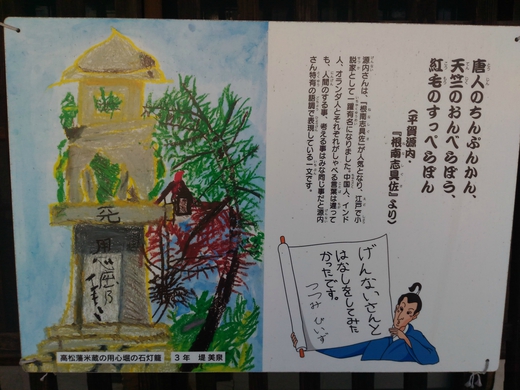 唐人のちんぷんかん、
天竺のおんべらぼう、
紅毛のすっぺらぽん
（平賀源内、
『根南志具佐』より）
源内さんは、「根南志具佐」が人気となり、江戸で小
説家として一躍有名になりました。中国人、インド
人、オランダ人とそれぞれがしゃべる言葉は違って
も、人間のする事、考える事はみな同じ事だと源内
さん特有の語調で表現している一文です。
げんないさんと
はなしをしてみた
かったです。
つつみ びいず
用心堀
高松藩米蔵の用心堀の石灯籠 3年 堤 美泉